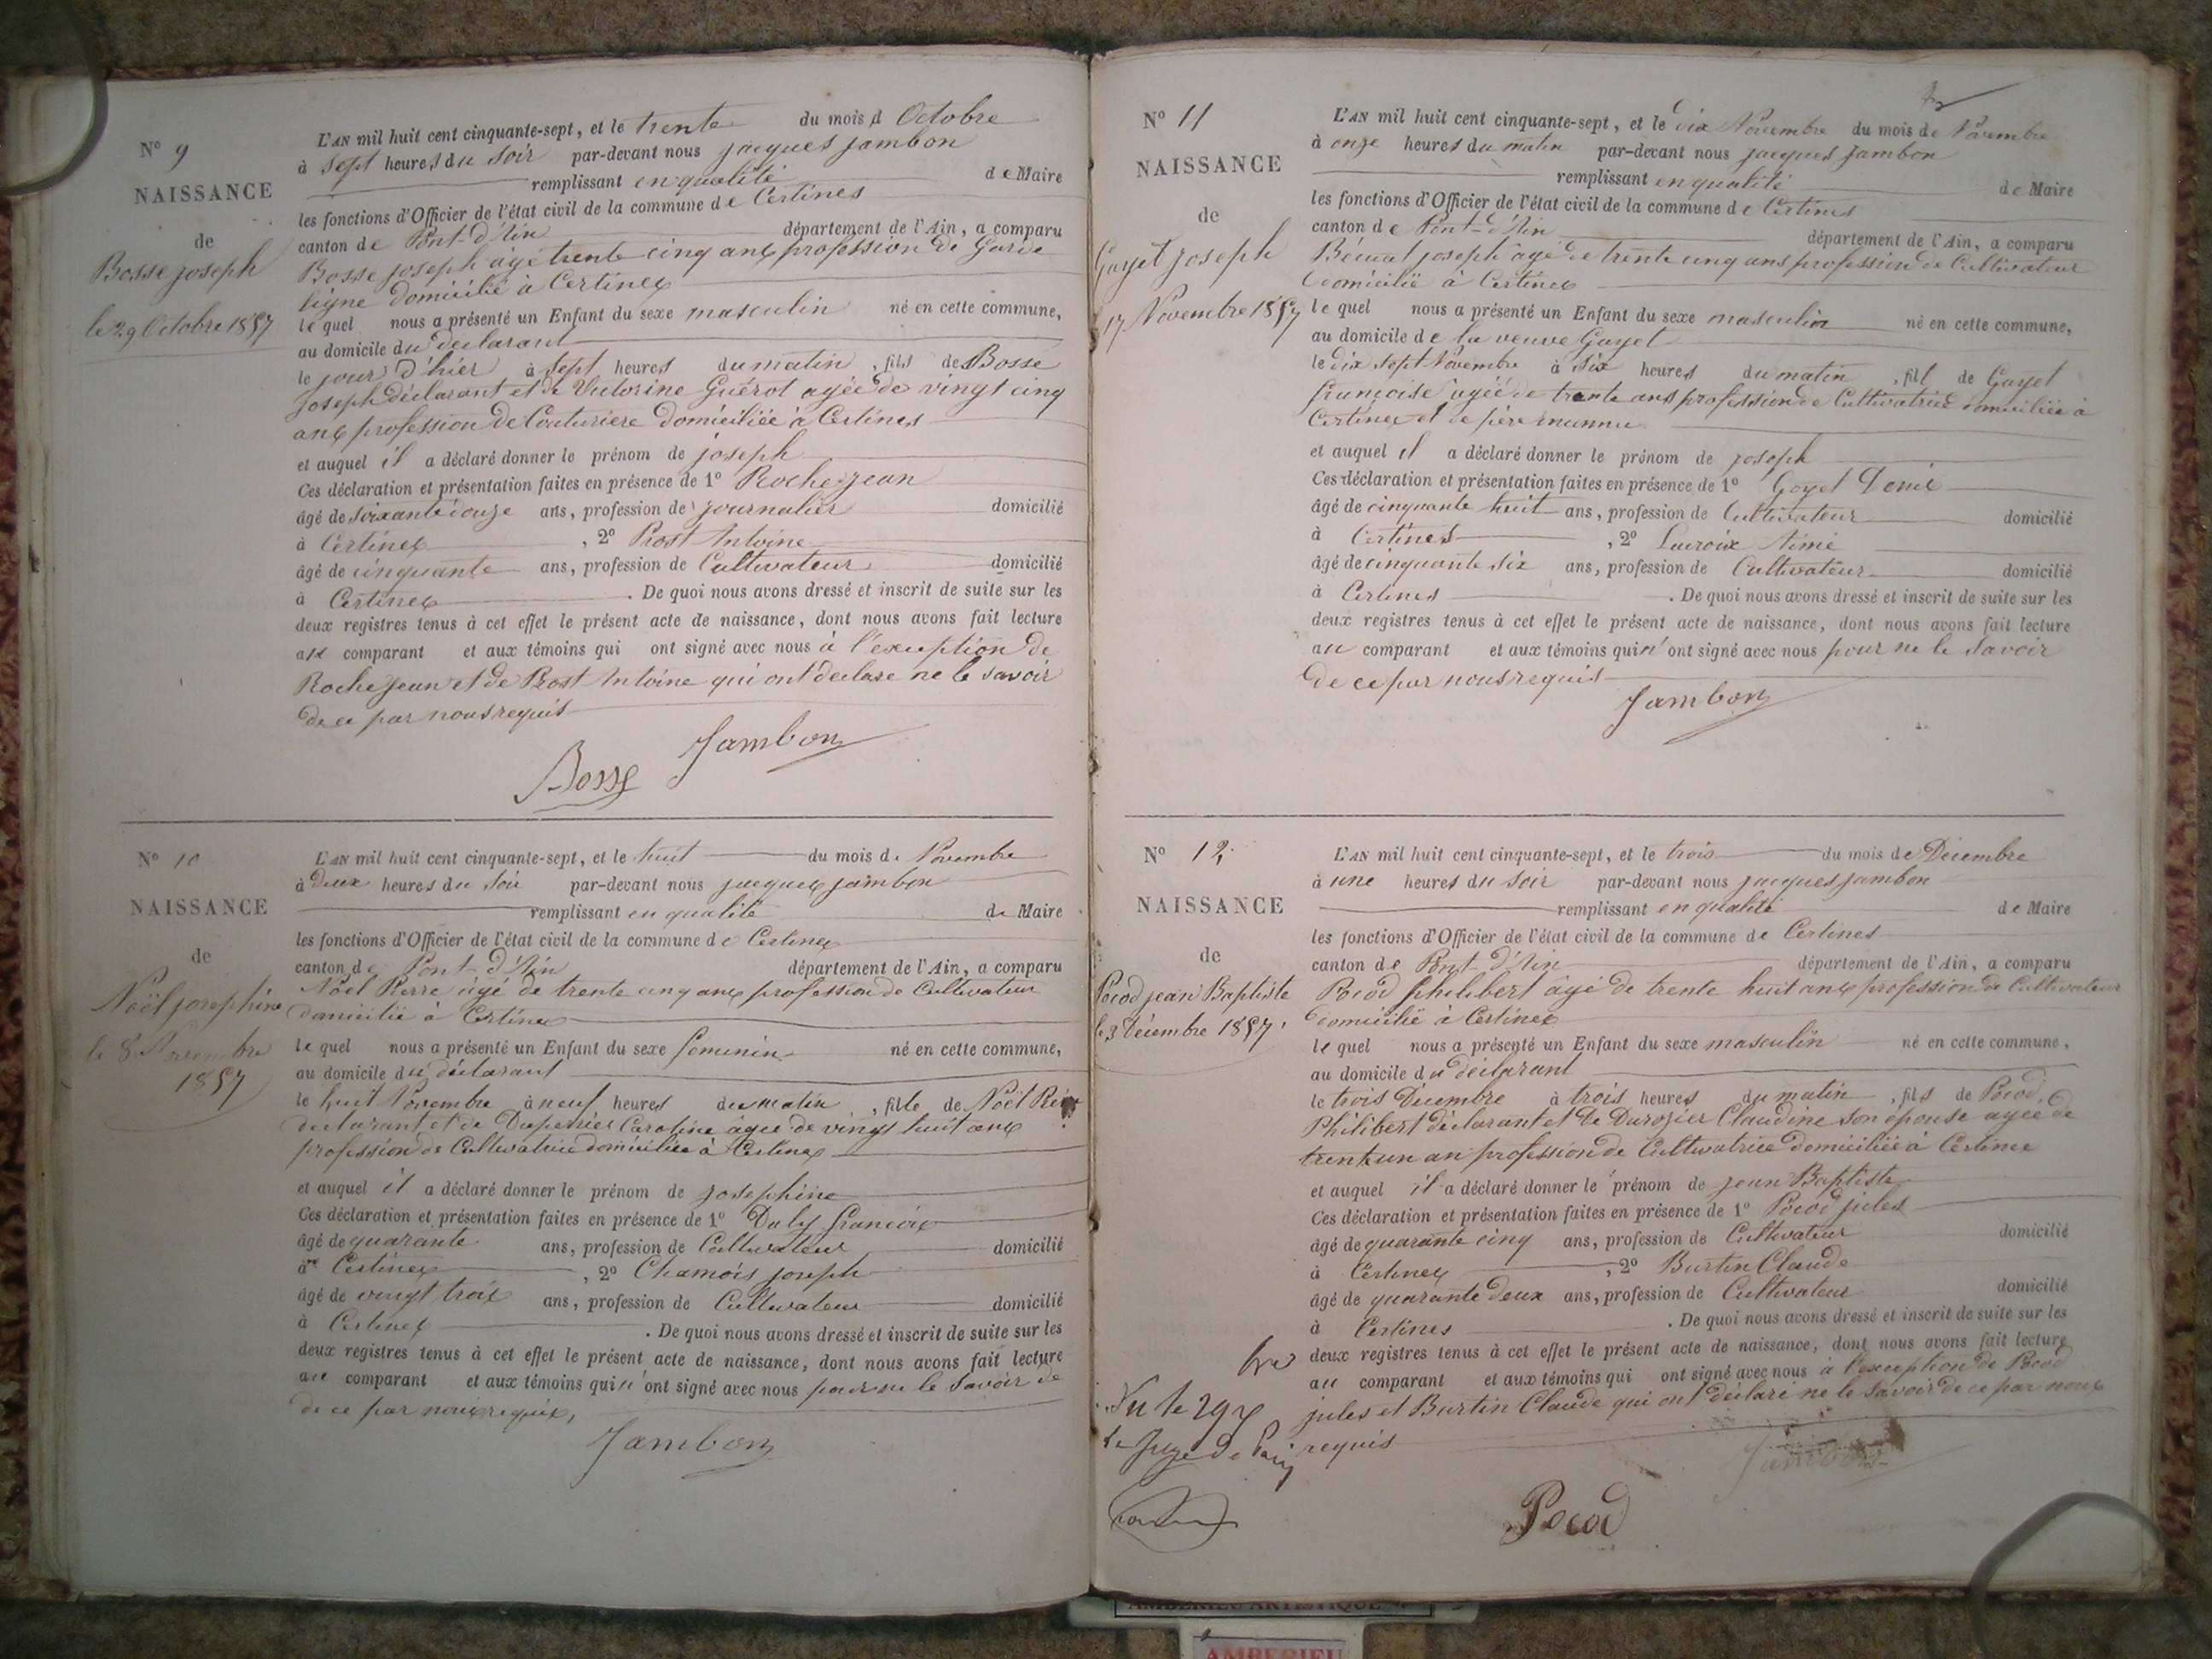 N° 9
NAISSANCE
de
Bosse joseph
le 29 Octobre 1857
L'AN mil huit cent cinquante-sept, et le trente du mois d Octobre
à sept heures du soir par-devant nous jacques jambon
remplissant en qualité de Maire
les fonctions d'Officier de l'état civil de la commune de Certines
canton de Pont-d'Ain département de l'Ain, a comparu
Bosse joseph agé trente cinq ans profession de Garde
ligne domicilié à Certines
le quel nous a présenté un Enfant du sexe masculin né en cette commune,
au domicile du déclarant
le jour d'hier à sept heures du matin, fils de Bosse
joseph déclarant et de Victorine Guérot agée de vingt cinq
ans profession de Couturiere domiciliée à Certines
et auquel il a déclaré donner le prénom de joseph
Ces déclaration et présentation faites en présence de 1° Roche jean
âgé de soixante douze ans, profession de journalier domicilié
à Certines, 2° Prost Antoine
âgé de cinquante ans, profession de Cultivateur domicilié
à Certines. De quoi nous avons dressé et inscrit de suite sur les
deux registres tenus à cet effet le présent acte de naissance, dont nous avons fait lecture
au comparant et aux témoins qui ont signé avec nous à l'exception de
Roche jean et de Prost Antoine qui ont declare ne le savoir
de ce par nous requis
Jambon
Bosse
N° 10
NAISSANCE
de
Noël josephine
le 8 Novembre
1857
L'AN mil huit cent cinquante-sept, et le huit du mois de Novembre
à deux heures du soir par-devant nous jacques jambon
remplissant en qualité de Maire
les fonctions d'Officier de l'état civil de la commune de Certines
canton de Pont-d'Ain département de l'Ain, a comparu
Noël Pierre agé de trente cinq ans profession de Cultivateur
domicilié à Certines
le quel nous a présenté un Enfant du sexe feminin né en cette commune,
au domicile du déclarant
le huit Novembre à neuf heures du matin, fille de Noël
déclarant et de Duperrier Caroline agée de vingt huit ans
profession de Cultivatrice domiciliée à Certines
et auquel il a déclaré donner le prénom de josephine
Ces déclaration et présentation faites en présence de 1° Duby françois
âgé de quarante ans, profession de Cultivateur domicilié
à Certines, 2° Chamois joseph
âgé de vingt trois ans, profession de Cultivateur domicilié
à Certines. De quoi nous avons dressé et inscrit de suite sur les
deux registres tenus à cet effet le présent acte de naissance, dont nous avons fait lecture
au comparant et aux témoins qui n'ont signé avec nous pour ne le savoir de
de ce par nous requis,
Jambon
N° 11
NAISSANCE
de
Gayet joseph
17 Novembre 1857
L'AN mil huit cent cinquante-sept, et le dix Novembre du mois de Novembre
à onze heures du matin par-devant nous jacques jambon
remplissant en qualité de Maire
les fonctions d'Officier de l'état civil de la commune de Certines
canton de Pont-d'Ain département de l'Ain, a comparu
joseph agé de trente cinq ans profession de Cultivateur
domicilié à Certines
le quel nous a présenté un Enfant du sexe masculin né en cette commune,
au domicile de la veuve Gayet
le dix sept Novembre à six heures du matin, fil de Gayet
françoise agée de trente ans profession de Cultivatrice domiciliée à
Certines et de père inconnu
et auquel il a déclaré donner le prénom de joseph
Ces déclaration et présentation faites en présence de 1° Gayet Denis
âgé de cinquante huit ans, profession de Cultivateur domicilié
à Certines, 2° Lacroix Aimé
âgé de cinquante six ans, profession de Cultivateur domicilié
à Certines. De quoi nous avons dressé et inscrit de suite sur les
deux registres tenus à cet effet le présent acte de naissance, dont nous avons fait lecture
au comparant et aux témoins qui n'ont signé avec nous pour ne le savoir
de ce par nous requis
Jambon
N° 12
NAISSANCE
de
Pocod jean Baptiste
le 3 Décembre 1857
L'AN mil huit cent cinquante-sept, et le trois du mois de Décembre
à une heures du soir par-devant nous jacques jambon
remplissant en qualité de Maire
les fonctions d'Officier de l'état civil de la commune de Certines
canton de Pont-d'Ain département de l'Ain, a comparu
Pocod philibert agé de trente huit ans profession de Cultivateur
domicilié à Certines
le quel nous a présenté un Enfant du sexe masculin né en cette commune,
au domicile du déclarant
le trois Décembre à trois heures du matin, fils de Pocod
Philibert déclarant et de Durozier Claudine son épouse agée de
trente un an profession de Cultivatrice domiciliée à Certines
et auquel il a déclaré donner le prénom de jean Baptiste
Ces déclaration et présentation faites en présence de 1° Pocod jules
âgé de quarante cinq ans, profession de Cultivateur domicilié
à Certines, 2° Burtin Claude
âgé de quarante deux ans, profession de Cultivateur domicilié
à Certines. De quoi nous avons dressé et inscrit de suite sur les
deux registres tenus à cet effet le présent acte de naissance, dont nous avons fait lecture
au comparant et aux témoins qui ont signé avec nous à l'exception de Pocod
jules et Burtin Claude qui ont déclaré ne le savoir de ce par nous
requis
Jambon
Pocod
Vu le 29
Le Juge de Paix
AMBERIEU ARTISTIQUE
AMBERIEU